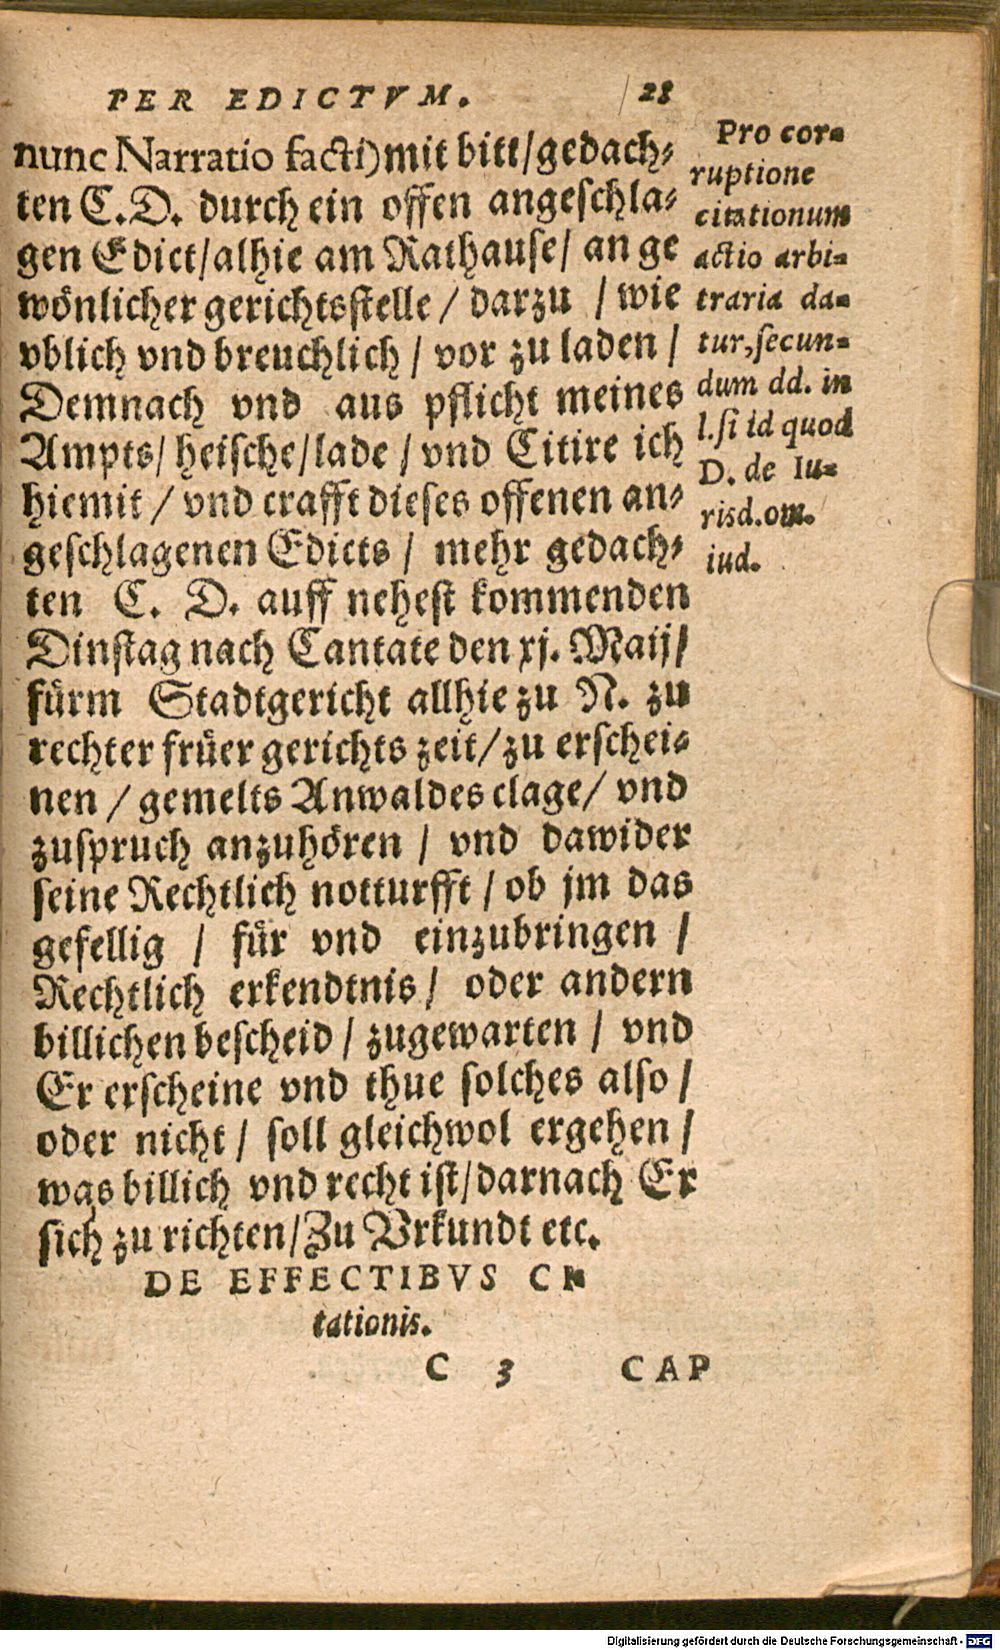 PER EDICTVM. 28
nunc Narratio facti) mit bitt/gedach⸗
ten C.D. durch ein offen angeschla⸗
gen Edict/alhie am Rathause/ an ge
wönlicher gerichtsstelle / darzu / wie
vblich vnd breuchlich / vor zu laden /
Demnach vnd aus pflicht meines
Ampts/ heische/lade / vnd Citire ich
hiemit / vnd crafft dieses offenen an⸗
geschlagenen Edicts / mehr gedach⸗
ten C. D. auff nehest kommenden
Dinstag nach Cantate den xj. Maij/
fürm Stadtgericht allhie zu N. zu
rechter früer gerichts zeit/ zu erschei⸗
nen / gemelts Anwaldes clage/ vnd
zuspruch anzuhören / vnd dawider
seine Rechtlich notturfft / ob jm das
gefellig / für vnd einzubringen /
Rechtlich erkendtnis / oder andern
billichen bescheid / zugewarten / vnd
Er erscheine vnd thue solches also /
oder nicht / soll gleichwol ergehen /
was billich vnd recht ist/ darnach Er
sich zu richten/ Zu Vrkundt etc.
DE EFFECTIBVS CI-
tationis.
C 3 CAP
Pro cor-
ruptione
citationum
actio arbi-
traria da-
tur, secun-
dum dd. in
l. si id quod
D. de Iu-
risd. om.
iud.
Digitalisierung gefördert durch die Deutsche Forschungsgemeinschaft - DFG